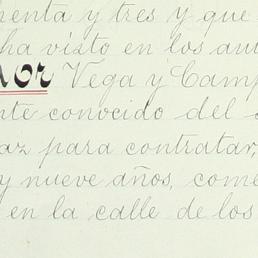 menta y tres y que
ha visto en los au
or Vega y Camp
nte conocido del
az para contratar,
y nueve años, come
en la calle de los